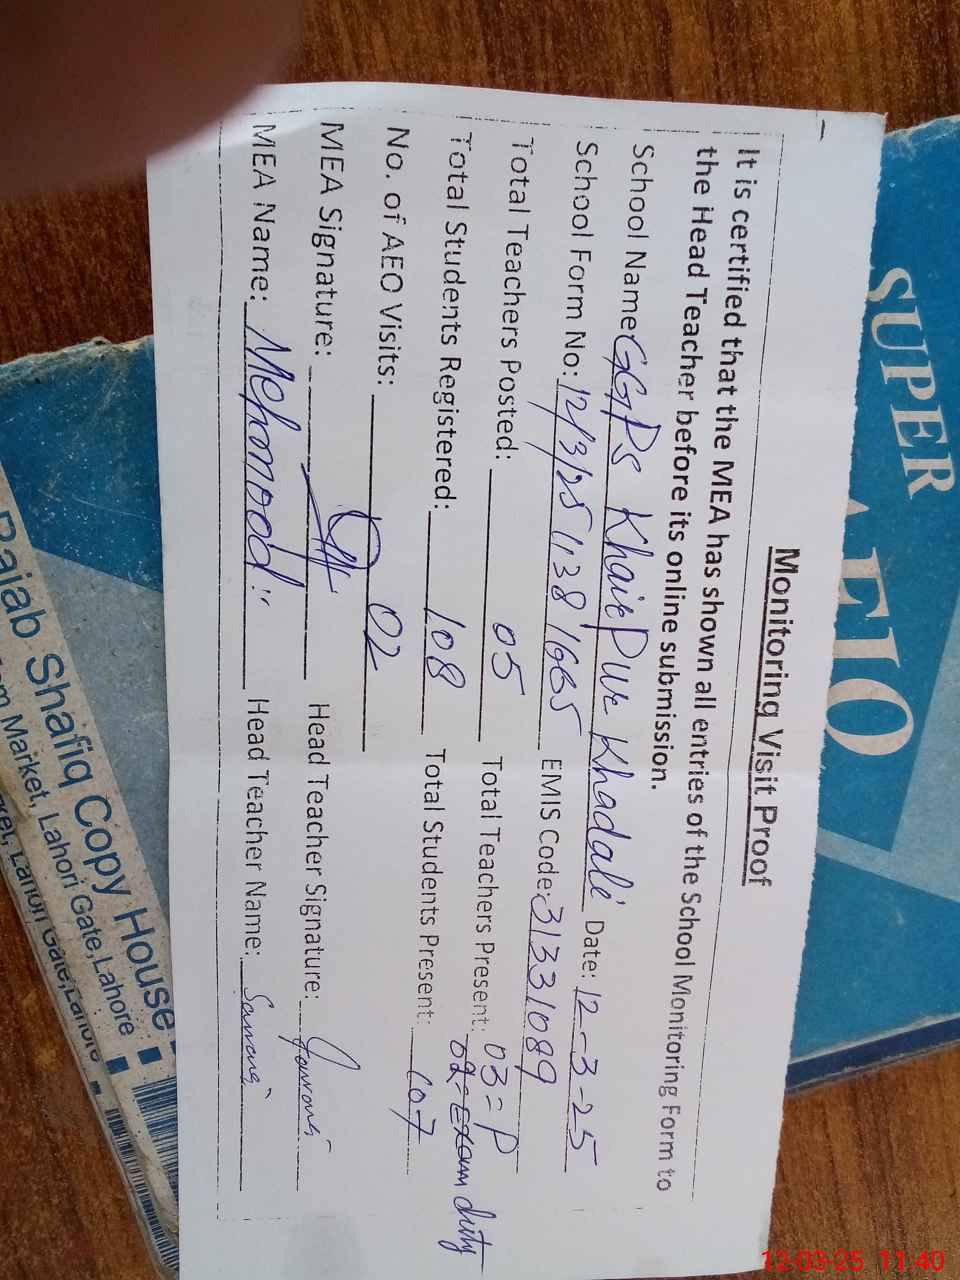 Monitoring Visit Proof
It is certified that the MEA has shown all entries of the School Monitoring Form to
the Head Teacher before its online submission.
School Name: GGPS Khairpur Khadali Date: 12-3-25
School Form No: 12/3/25 1138 1665 EMIS Code: 31331089
Total Teachers Posted: 05 Total Teachers Present: 03=P
02=Exam duty
Total Students Registered: 108 Total Students Present: 107
No. of AEO Visits: 02
MEA Signature: Head Teacher Signature:
MEA Name: Mehmood Head Teacher Name:
SUPER
Rajab Shafiq Copy House
Market, Lahori Gate, Lahore
12-03-25 11:40